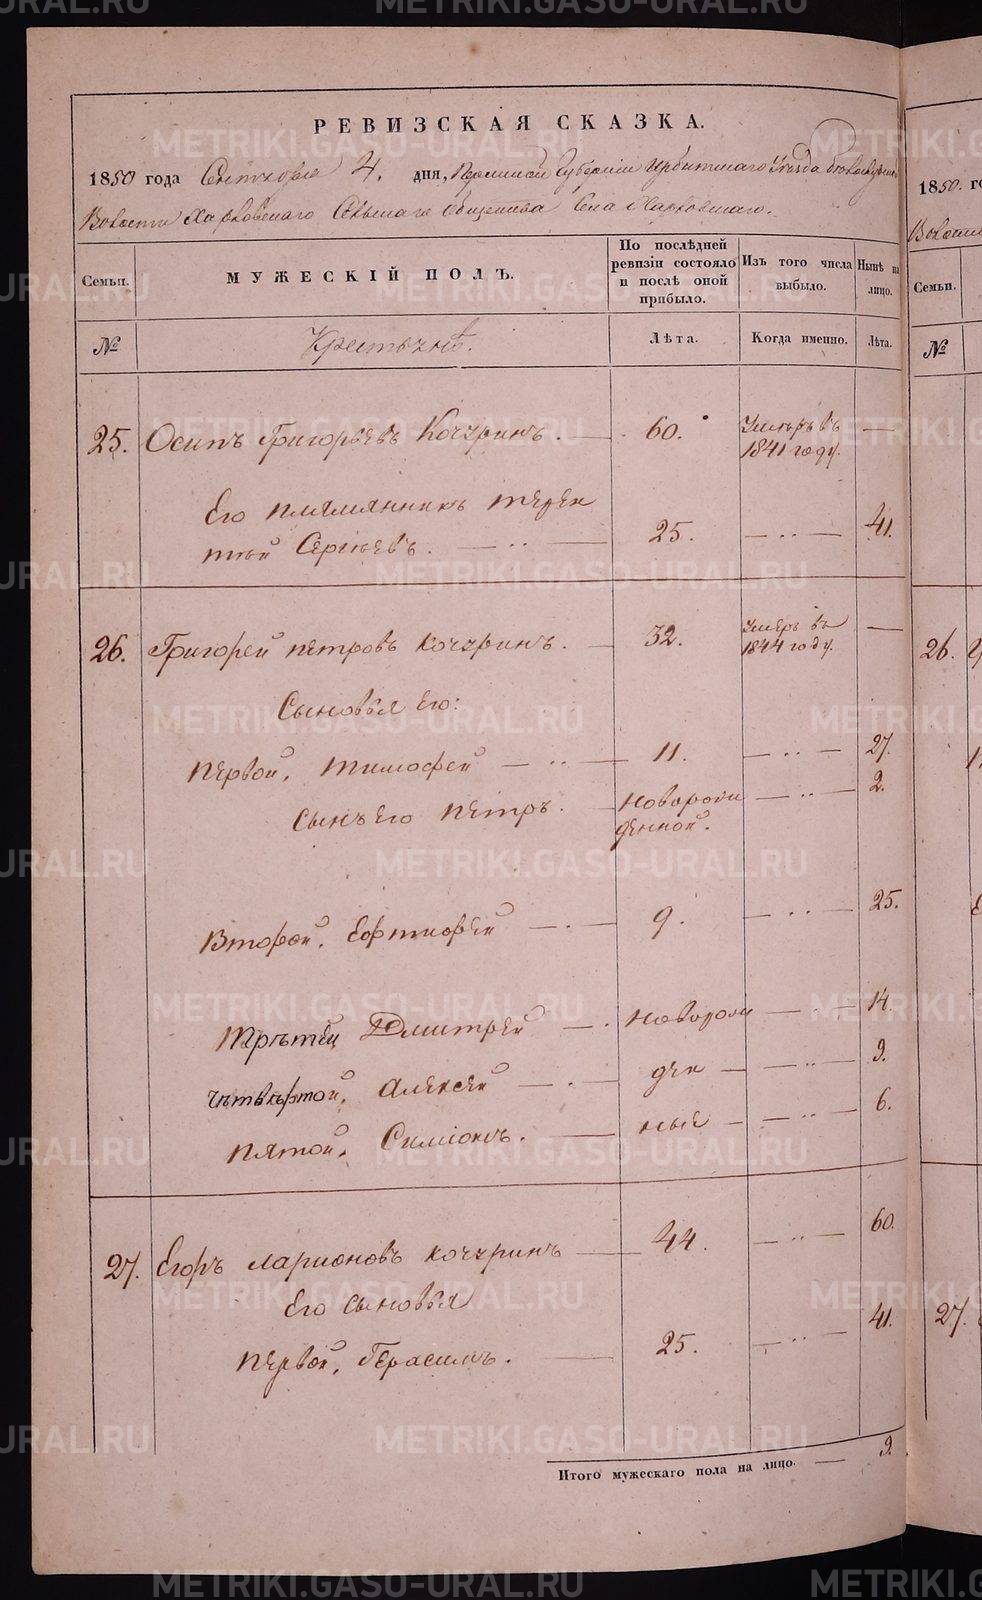 РЕВИЗСКАЯ СКАЗКА.
1850 года Сентября 4. дня, Пермской Губернии Ирбитскаго Уезда
Волости Харловскаго Сельскаго Общества Села Харловскаго.
Семьи. МУЖЕСКІЙ ПОЛЪ. По послѣдней ревизіи состояло и послѣ оной прибыло. Изъ того числа выбыло. Нынѣ на лицо.
№ Крестьянѣ. Лѣта. Когда именно. Лѣта.
25. Осипъ Григорьевъ Кочуринъ. 60. Умеръ въ 1841 году. —
Его племянникъ Терен
тий Сергѣевъ. 25. — „ — 41.
26. Григорей Петровъ Кочуринъ. 32. Умеръ въ 1844 году. —
Сыновья Его:
Первой, Тимофей 11. — „ — 27.
Сынъ Его Петръ. Новорож — „ — 2.
денной.
Второй, Ефтиофей 9. — „ — 25.
Третей Дмитрей Новорож — „ — 14.
Четвертой, Алексей ден — „ — 9.
Пятой, Симионъ. ные — „ — 6.
27. Егоръ Ларионовъ Кочуринъ 44. — „ — 60.
Его сыновья
Первой, Герасимъ. 25. — „ — 41.
Итого мужескаго пола на лицо. — 9.
1850. го
Волости
Семьи.
№
26.
27.
METRIKI.GASO-URAL.RU